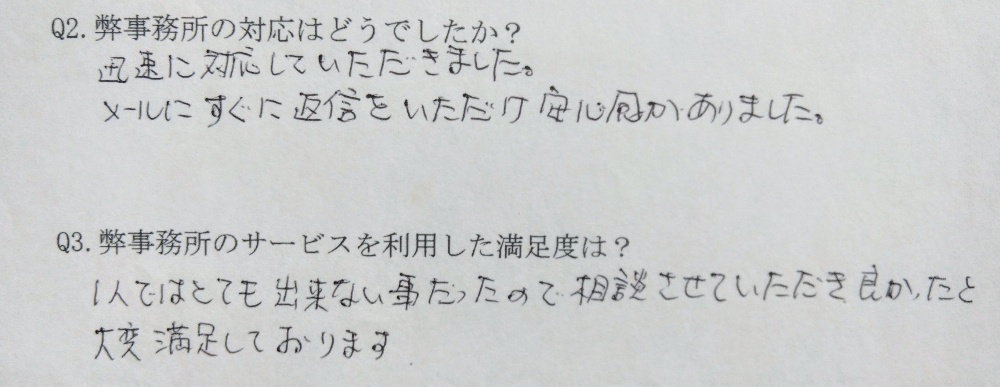 Q2. 弊事務所の対応はどうでしたか？
迅速に対応していただきました。
メールにすぐに返信をいただけ安心感がありました。
Q3. 弊事務所のサービスを利用した満足度は？
1人ではとても出来ない事だったので相談させていただき良かったと
大変満足しております